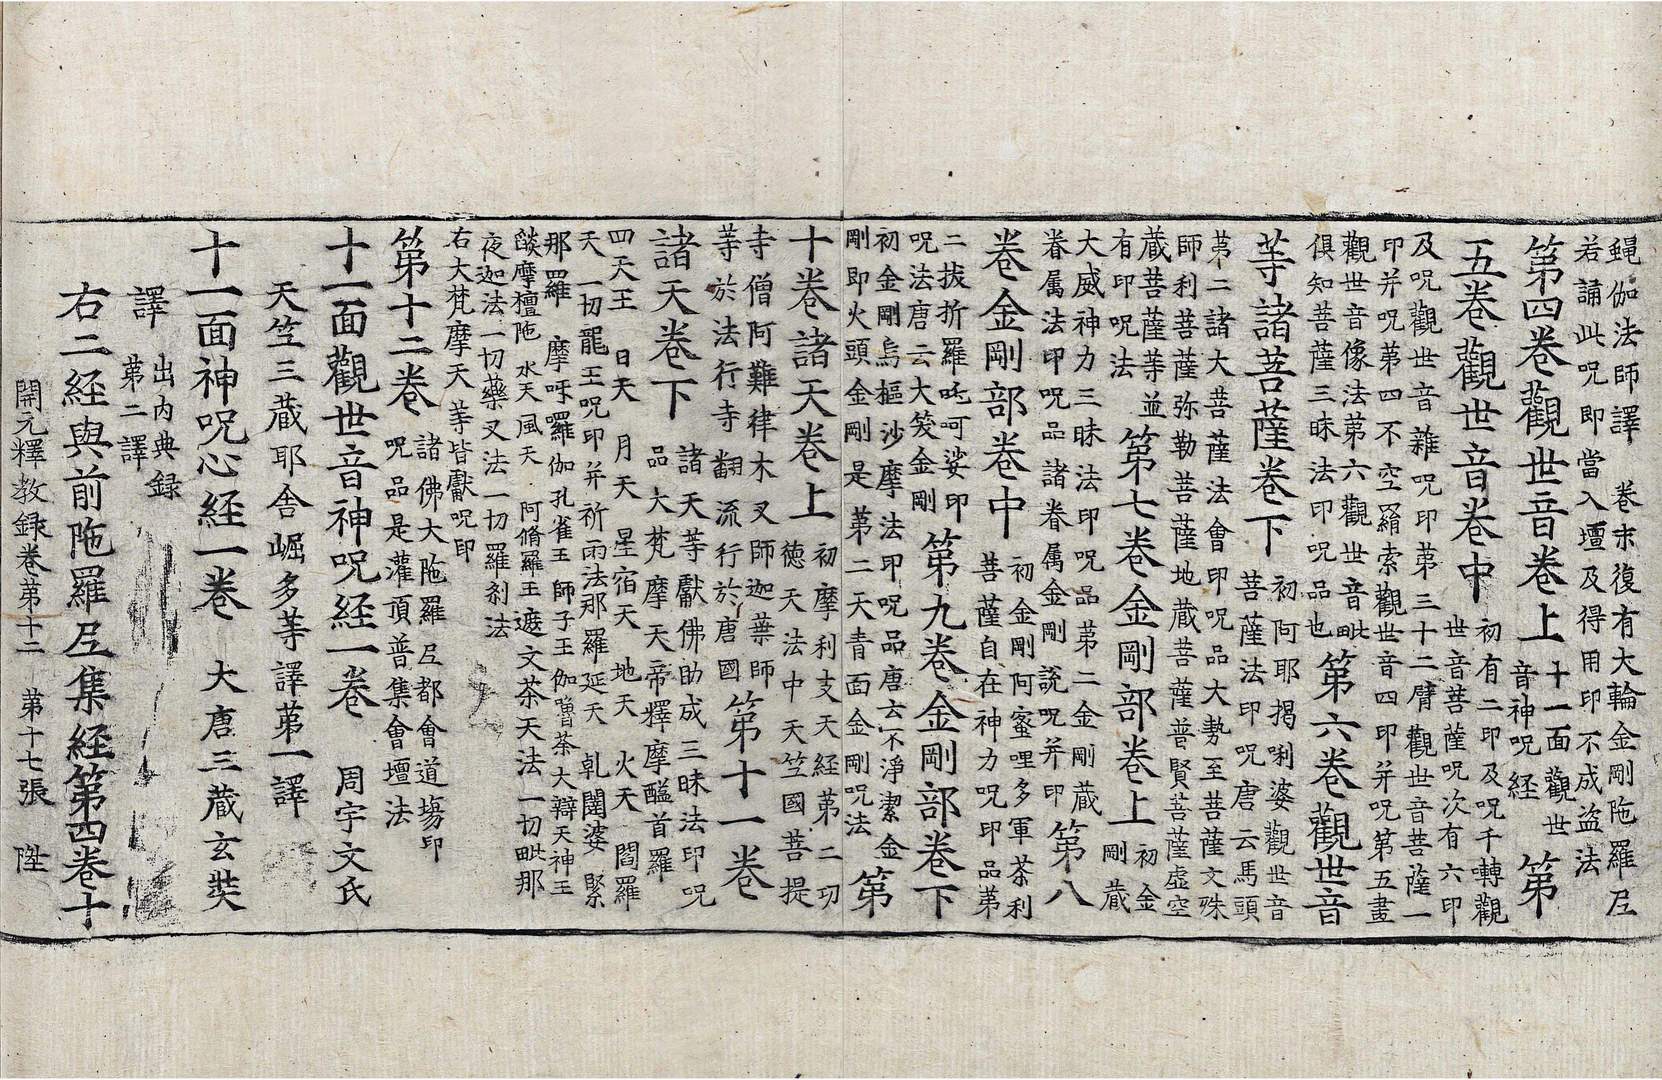 蝿伽法師譯 卷末復有大輪金剛陁羅尼
若誦此呪即當入壇及得用印不成盜法
第四卷觀世音卷上 十一面觀世
音神呪經 第
五卷觀世音卷中 初有二印及呪千轉觀
世音菩薩呪次有六印
及呪觀世音雜呪印苐三十二臂觀世音菩薩一
印并呪第四不空羂索觀世音四印并呪第五畫
觀世音像法第六觀世音毗
俱知菩薩三昧法印呪品也 第六卷觀世音
等諸菩薩卷下 初阿耶揭唎婆觀世音
菩薩法印呪唐云馬頭
苐二諸大菩薩法會印呪品大勢至菩薩文殊
師利菩薩弥勒菩薩地藏菩薩普賢菩薩虛空
藏菩薩等並
有印呪法 第七卷金剛部卷上 初金
剛藏
大威神力三昧法印呪品苐二金剛藏
眷属法印呪品諸眷属金剛說呪并印 第八
卷金剛部卷中 初金剛阿蜜哩多軍荼利
菩薩自在神力呪印品苐
二拔折羅吒呵娑印
呪法唐云大笑金剛 第九卷金剛部卷下
初金剛烏樞沙摩法印呪品唐云不淨潔金
剛即火頭金剛是苐二天青面金剛呪法 第
十卷諸天卷上 初摩利支天經苐二功
德天法中天竺國菩提
寺僧阿難律木叉師迦葉師
等於法行寺翻流行於唐國 第十一卷
諸天卷下 諸天等獻佛助成三昧法印呪
品大梵摩天帝釋摩醯首羅
四天王 日天 月天 星宿天 地天 火天 閻羅
天一切龍王呪印并祈雨法那羅延天 乹闥婆 緊
那羅 摩呼囉伽孔雀王 師子王 伽嚕荼大辯天神王
燄摩檀陁 水天風天 阿脩羅王 遮文荼天法 一切毗那
夜迦法一切藥叉法一切羅剎法
右大梵摩天等皆獻呪印
第十二卷 諸佛大陁羅尼都會道塲印
呪品是灌頂普集會壇法
十一面觀世音神呪經一卷 周宇文氏
天竺三藏耶舍崛多等譯苐一譯
十一面神呪心經一卷 大唐三藏玄奘
譯 出內典録
第二譯
右二經與前陁羅尼集經第四卷十
開元釋教録卷第十二 第十七張 陞